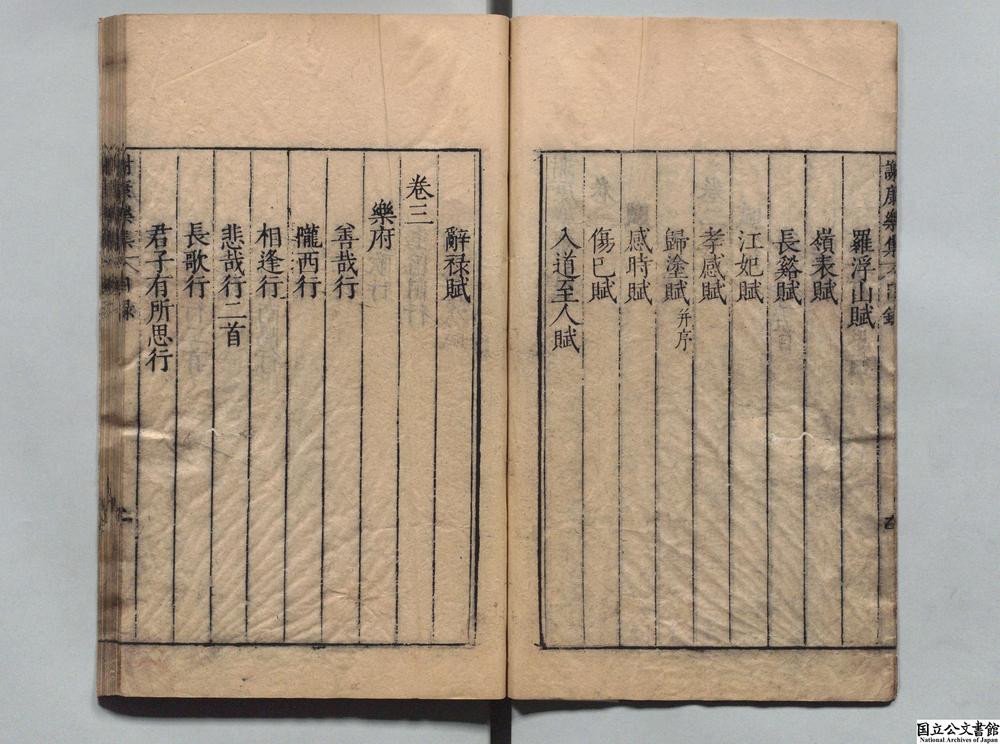 羅浮山賦
嶺表賦
長谿賦
江妃賦
孝感賦
歸塗賦并序
感時賦
傷已賦
入道至人賦
辭祿賦
卷三
樂府
善哉行
隴西行
相逢行
悲哉行二首
長歌行
君子有所思行
謝康樂集
国立公文書館
National Archives of Japan